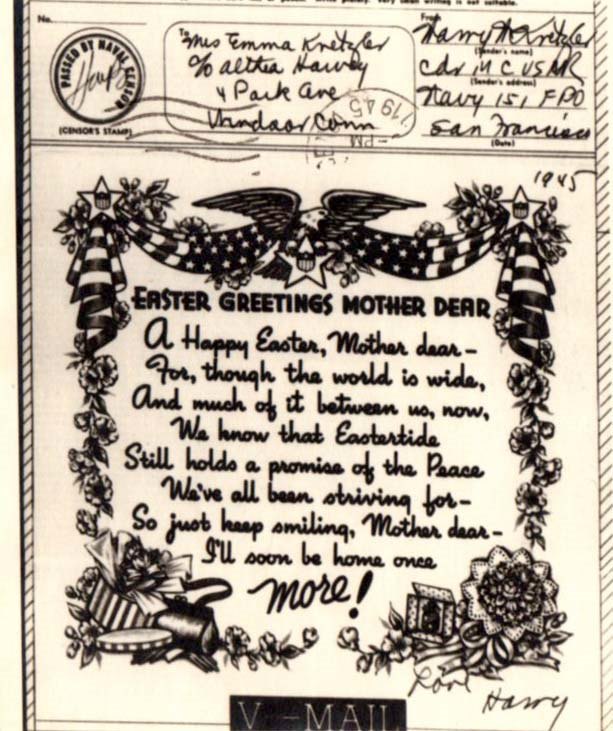 writing is not suitable.
No.
PASSED BY NAVAL CENSOR
(CENSOR'S STAMP)
To
Mrs Emma Kretzler
c/o Althea Harvey
4 Park Ave
Windsor, Conn
1945
PM
From
Harry H Kretzler
(Sender's name)
Cdr M C USNR
(Sender's address)
Navy 151 FPO
San Francisco
(Date)
1945
EASTER GREETINGS MOTHER DEAR
A Happy Easter, Mother dear—
For, though the world is wide,
And much of it between us, now,
We know that Eastertide
Still holds a promise of the Peace
We've all been striving for—
So just keep smiling, Mother dear—
I'll soon be home once
more!
Love
Harry
V-MAIL